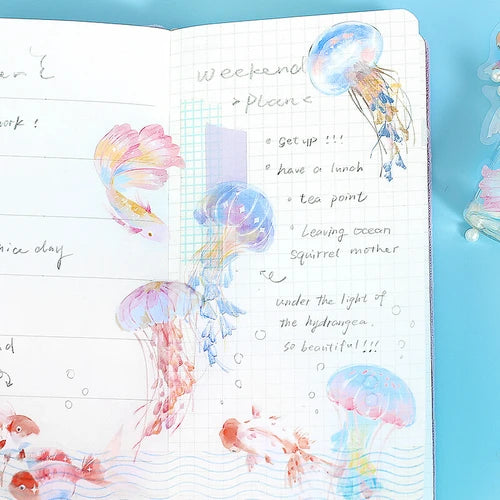 work!
nice day
weekend
Plan
Get up !!!
have a lunch
tea point
Leaving ocean
squirrel mother
under the light of
the hydrangea.
so beautiful!!!